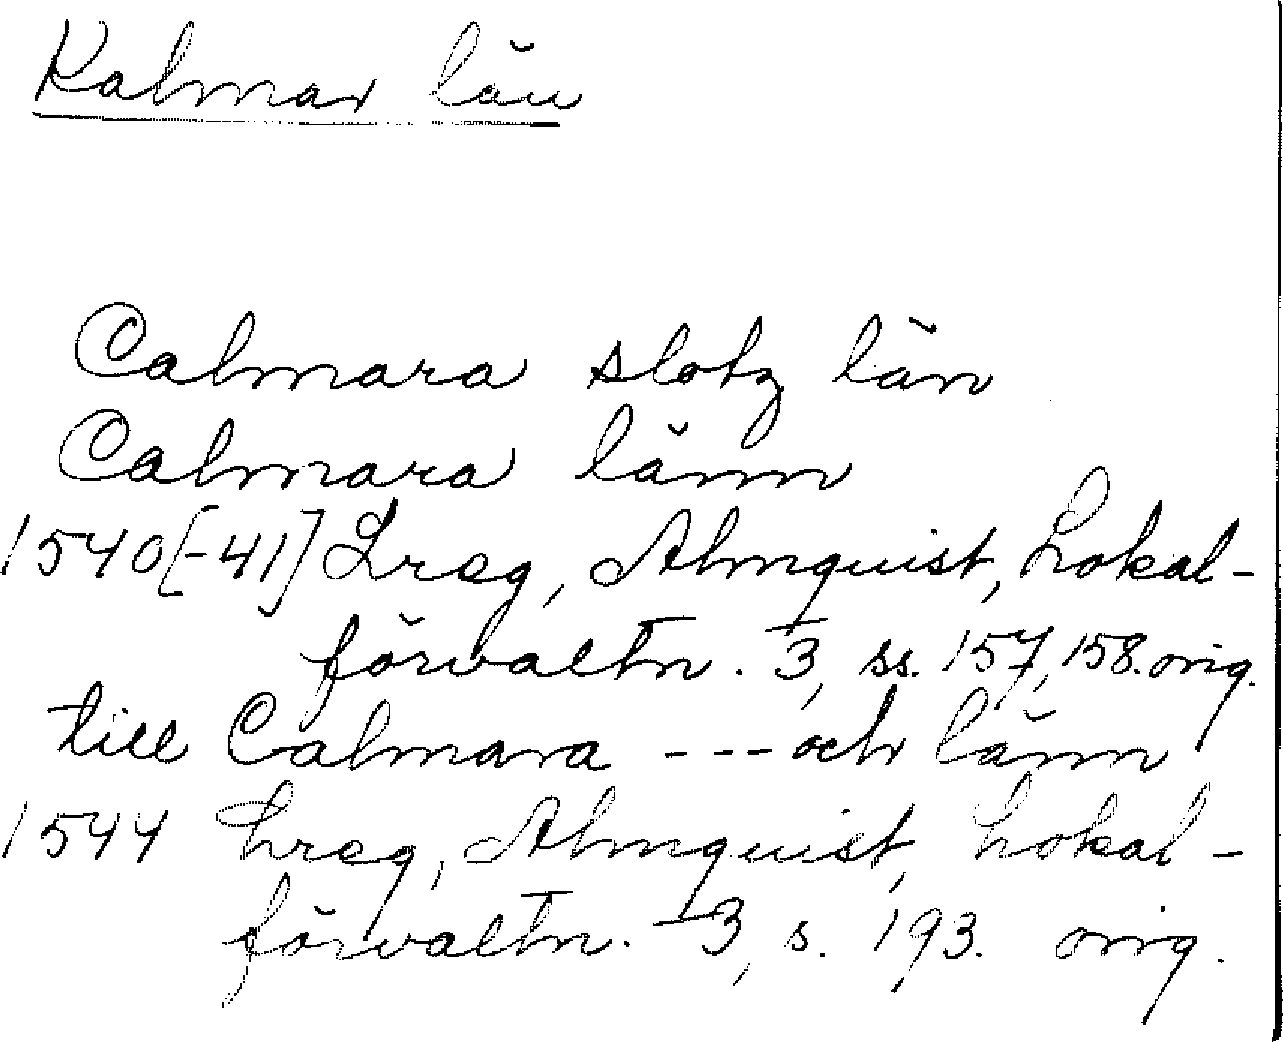 Kalmar län
Calmara slotz län
Calmara länn
1540[-41] Lreg, Almquist, Lokal-
förvaltn. 3, ss. 157, 158. orig.
till Calmara --- och länn
1544 Lreg, Almquist, Lokal-
förvaltn. 3, s. 193. orig.